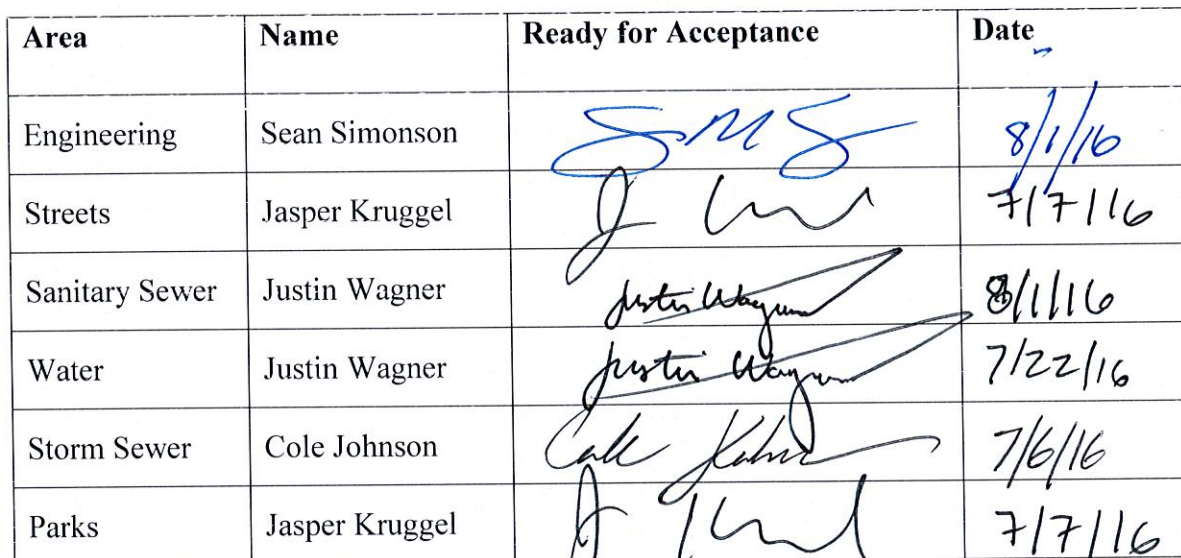 Area Name Ready for Acceptance Date
Engineering Sean Simonson 8/1/16
Streets Jasper Kruggel 7/7/16
Sanitary Sewer Justin Wagner Justin Wagner 8/1/16
Water Justin Wagner Justin Wagner 7/22/16
Storm Sewer Cole Johnson 7/6/16
Parks Jasper Kruggel 7/7/16